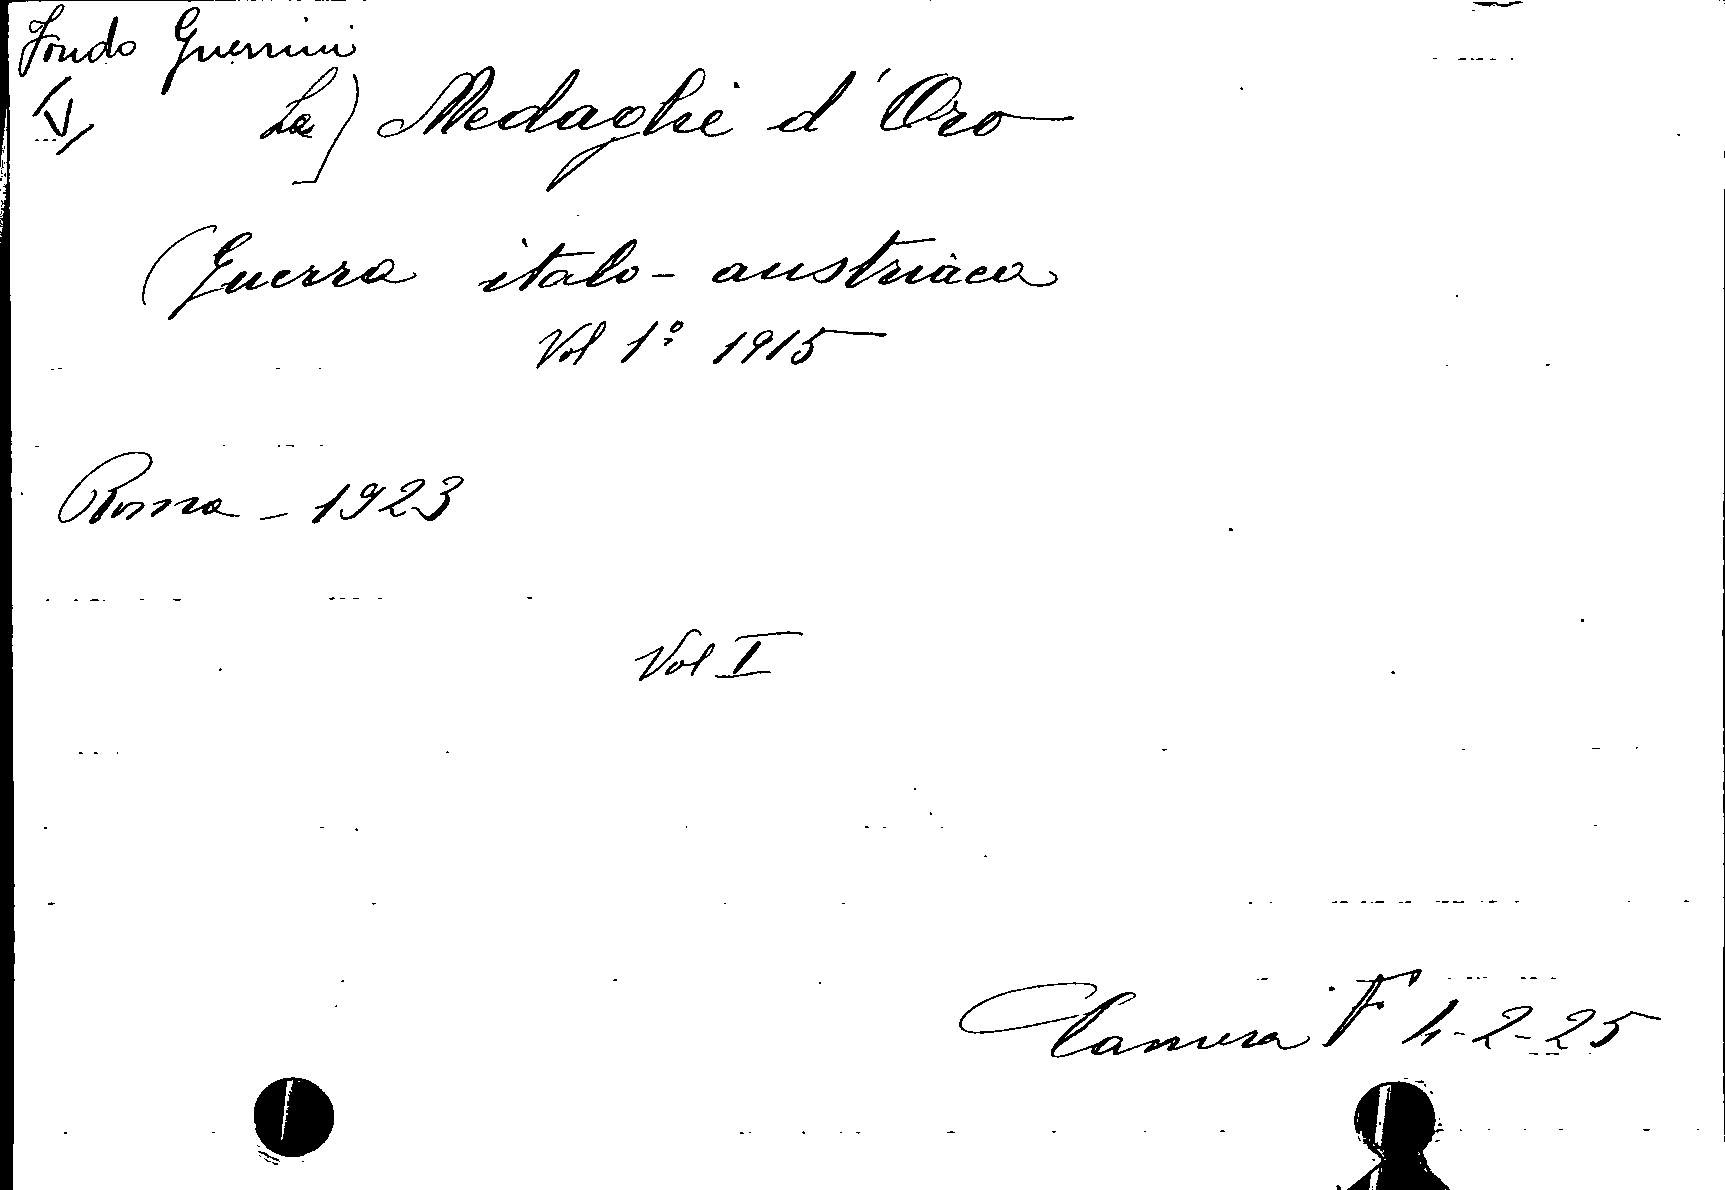 Fondo Guerrini
V
La) Medaglie d'Oro
(Guerra italo-austriaca
Vol 1º 1915
Roma - 1923
Vol I
Camera F 4-2-25